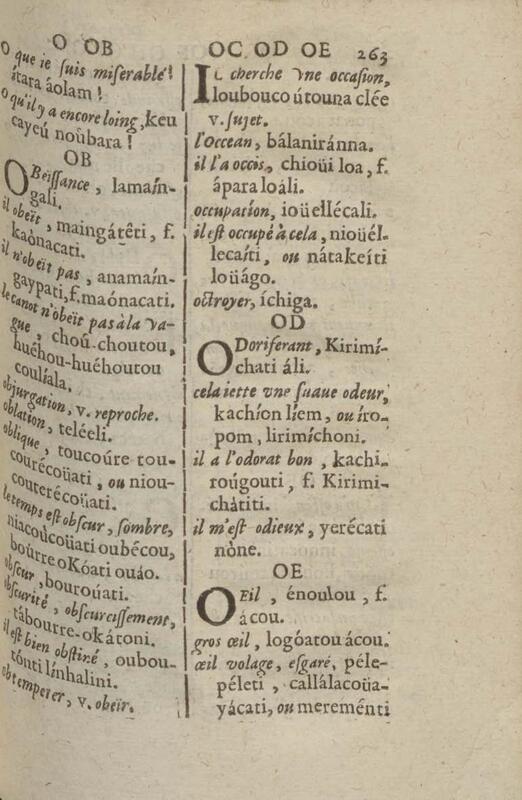 O OB
O que ie suis miserable!
ítara áolam!
O qu'il y a encore loing, keu
cayeú noûbara!
OB
OBeïssance, lamaín-
gali.
il obeït, maingátêti, f.
kaònacati.
il n'obeït pas, anamaín-
gaypati, f. maónacati.
le canot n'obeït pas à la va-
gue, choú-choutou,
huéhou-huéhoutou
coulíala.
objurgation, v. reproche.
oblation, teléeli.
oblique, toucoúre tou-
courécoüati, ou niou-
couterécoüati.
le temps est obscur, sombre,
niacoùcoüati oubécou,
boúrre oKóati ouáo.
obscur, bouroúati.
obscurité, obscurcissement,
tábourre-okátoni.
il est bien obstiné, oubou-
tónti línhalini.
obtemperer, v. obeir.
OC OD OE 263
IL cherche vne occasion,
loubouco útouna clée
v. sujet.
l'Occean, bálaniránna.
il l'a occis, chioüi loa, f.
ápara loáli.
occupation, ioüellécali.
il est occupé à cela, nioüél-
lecaíti, ou nátakeíti
loüágo.
octroyer, íchiga.
OD
ODoriferant, Kirimí-
chati áli.
cela iette vne suaue odeur,
kachíon líem, ou íro-
pom, lirimíchoni.
il a l'odorat bon, kachi-
roúgouti, f. Kirimi-
chàtiti.
il m'est odieux, yerécati
nòne.
OE
OEil, énoulou, f.
ácou.
gros œil, logóatou ácou.
œil volage, esgaré, péle-
péleti, callálacoüa-
yácati, ou mereménti